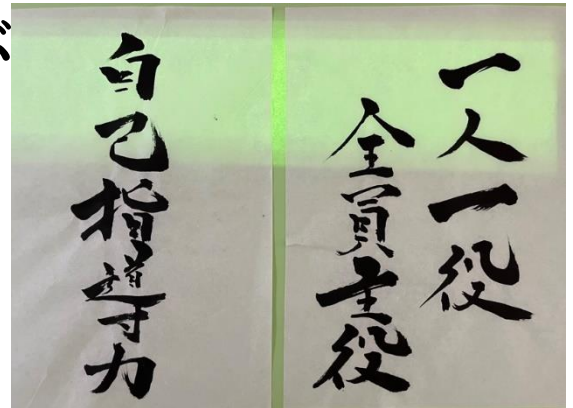 一人一役
全員主役
自己指導力